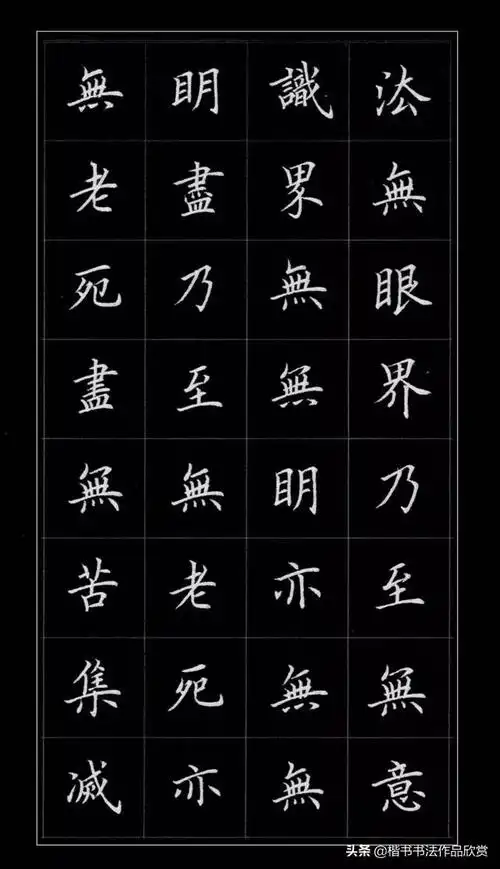 法無眼界乃至無意
識界無無明亦無無
明盡乃至無老死亦
無老死盡無苦集滅
头条 @楷书书法作品欣赏